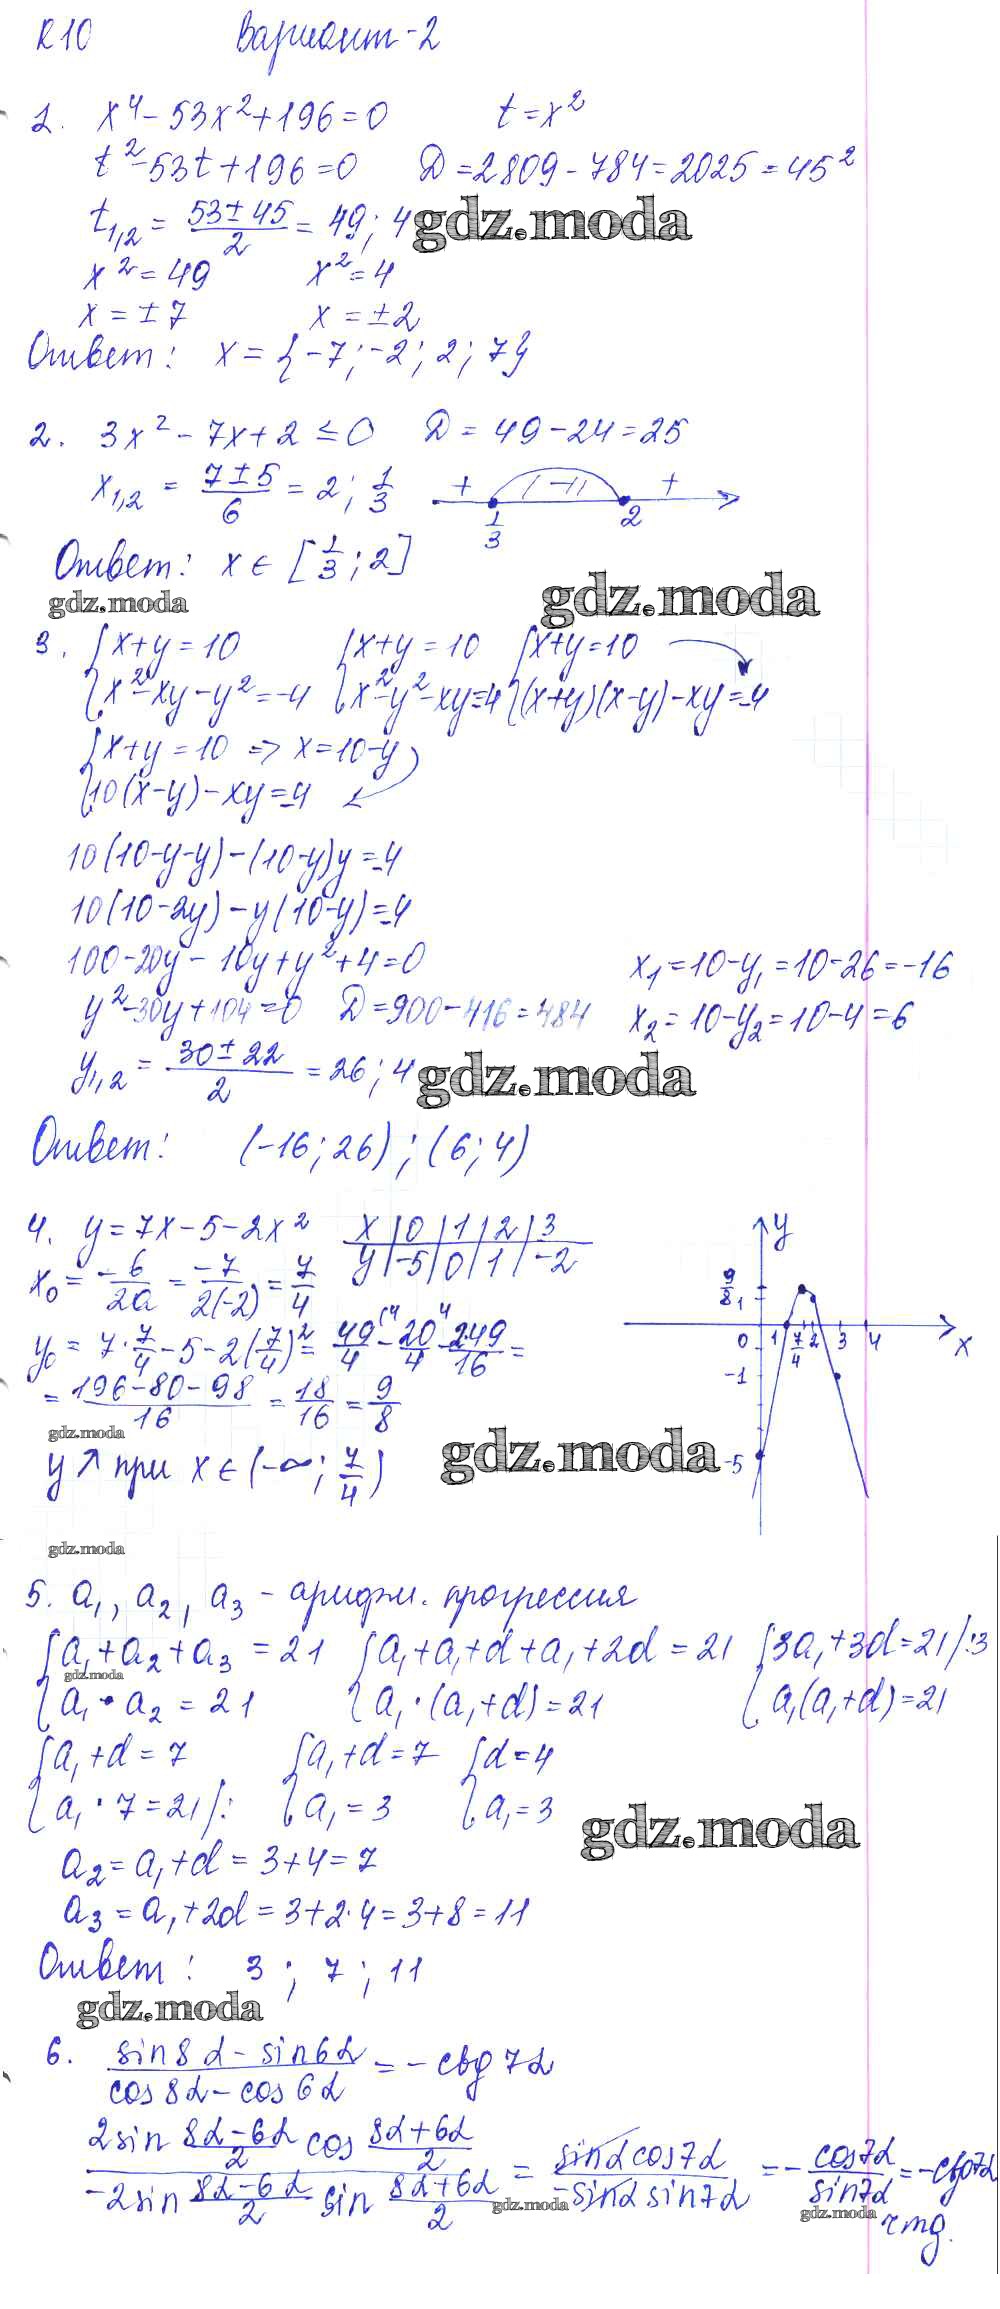 К10 Вариант-2
1. x⁴ - 53x² + 196 = 0 t = x²
t² - 53t + 196 = 0 Д = 2809 - 784 = 2025 = 45²
t₁,₂ = (53 ± 45)/2 = 49; 4
gdz.moda
x² = 49 x² = 4
x = ±7 x = ±2
Ответ: x = {-7; -2; 2; 7}
2. 3x² - 7x + 2 ≤ 0 Д = 49 - 24 = 25
x₁,₂ = (7 ± 5)/6 = 2; 1/3 + - + 1/3 2
Ответ: x ∈ [1/3; 2]
gdz.moda gdz.moda
3. {x + y = 10 {x + y = 10 {x + y = 10
{x² - xy - y² = -4 {x² - y² - xy = -4 {(x+y)(x-y) - xy = -4
{x + y = 10 => x = 10 - y
{10(x-y) - xy = -4
10(10-y-y) - (10-y)y = -4
10(10-2y) - y(10-y) = -4
100 - 20y - 10y + y² + 4 = 0 x₁ = 10 - y₁ = 10 - 26 = -16
y² - 30y + 104 = 0 Д = 900 - 416 = 484 x₂ = 10 - y₂ = 10 - 4 = 6
y₁,₂ = (30 ± 22)/2 = 26; 4
gdz.moda
Ответ: (-16; 26); (6; 4)
4. y = 7x - 5 - 2x² x | 0 | 1 | 2 | 3
y | -5 | 0 | 1 | -2
x₀ = -в/2a = -7/2(-2) = 7/4
y₀ = 7·7/4 - 5 - 2(7/4)² = 49/4 (4 - 20/4 4 - 2·49/16 =
= (196 - 80 - 98)/16 = 18/16 = 9/8
gdz.moda
y ↗ при x ∈ (-∞; 7/4)
gdz.moda
y 9/8 1 0 1 7/4 2 3 4 x -1 -5
gdz.moda
5. a₁, a₂, a₃ - арифм. прогрессия
{a₁ + a₂ + a₃ = 21 {a₁ + a₁ + d + a₁ + 2d = 21 {3a₁ + 3d = 21 /:3
gdz.moda
{a₁ · a₂ = 21 {a₁·(a₁+d) = 21 {a₁(a₁+d) = 21
{a₁ + d = 7 {a₁ + d = 7 {d = 4
{a₁ · 7 = 21 /: {a₁ = 3 {a₁ = 3
gdz.moda
a₂ = a₁ + d = 3 + 4 = 7
a₃ = a₁ + 2d = 3 + 2·4 = 3 + 8 = 11
Ответ: 3; 7; 11
gdz.moda
6. (sin8α - sin6α)/(cos8α - cos6α) = -ctg7α
(2sin (8α-6α)/2 cos (8α+6α)/2)/(-2sin (8α-6α)/2 sin (8α+6α)/2) = (sinα cos7α)/(-sinα sin7α) = -cos7α/sin7α = -ctg7α
gdz.moda gdz.moda
чтд.